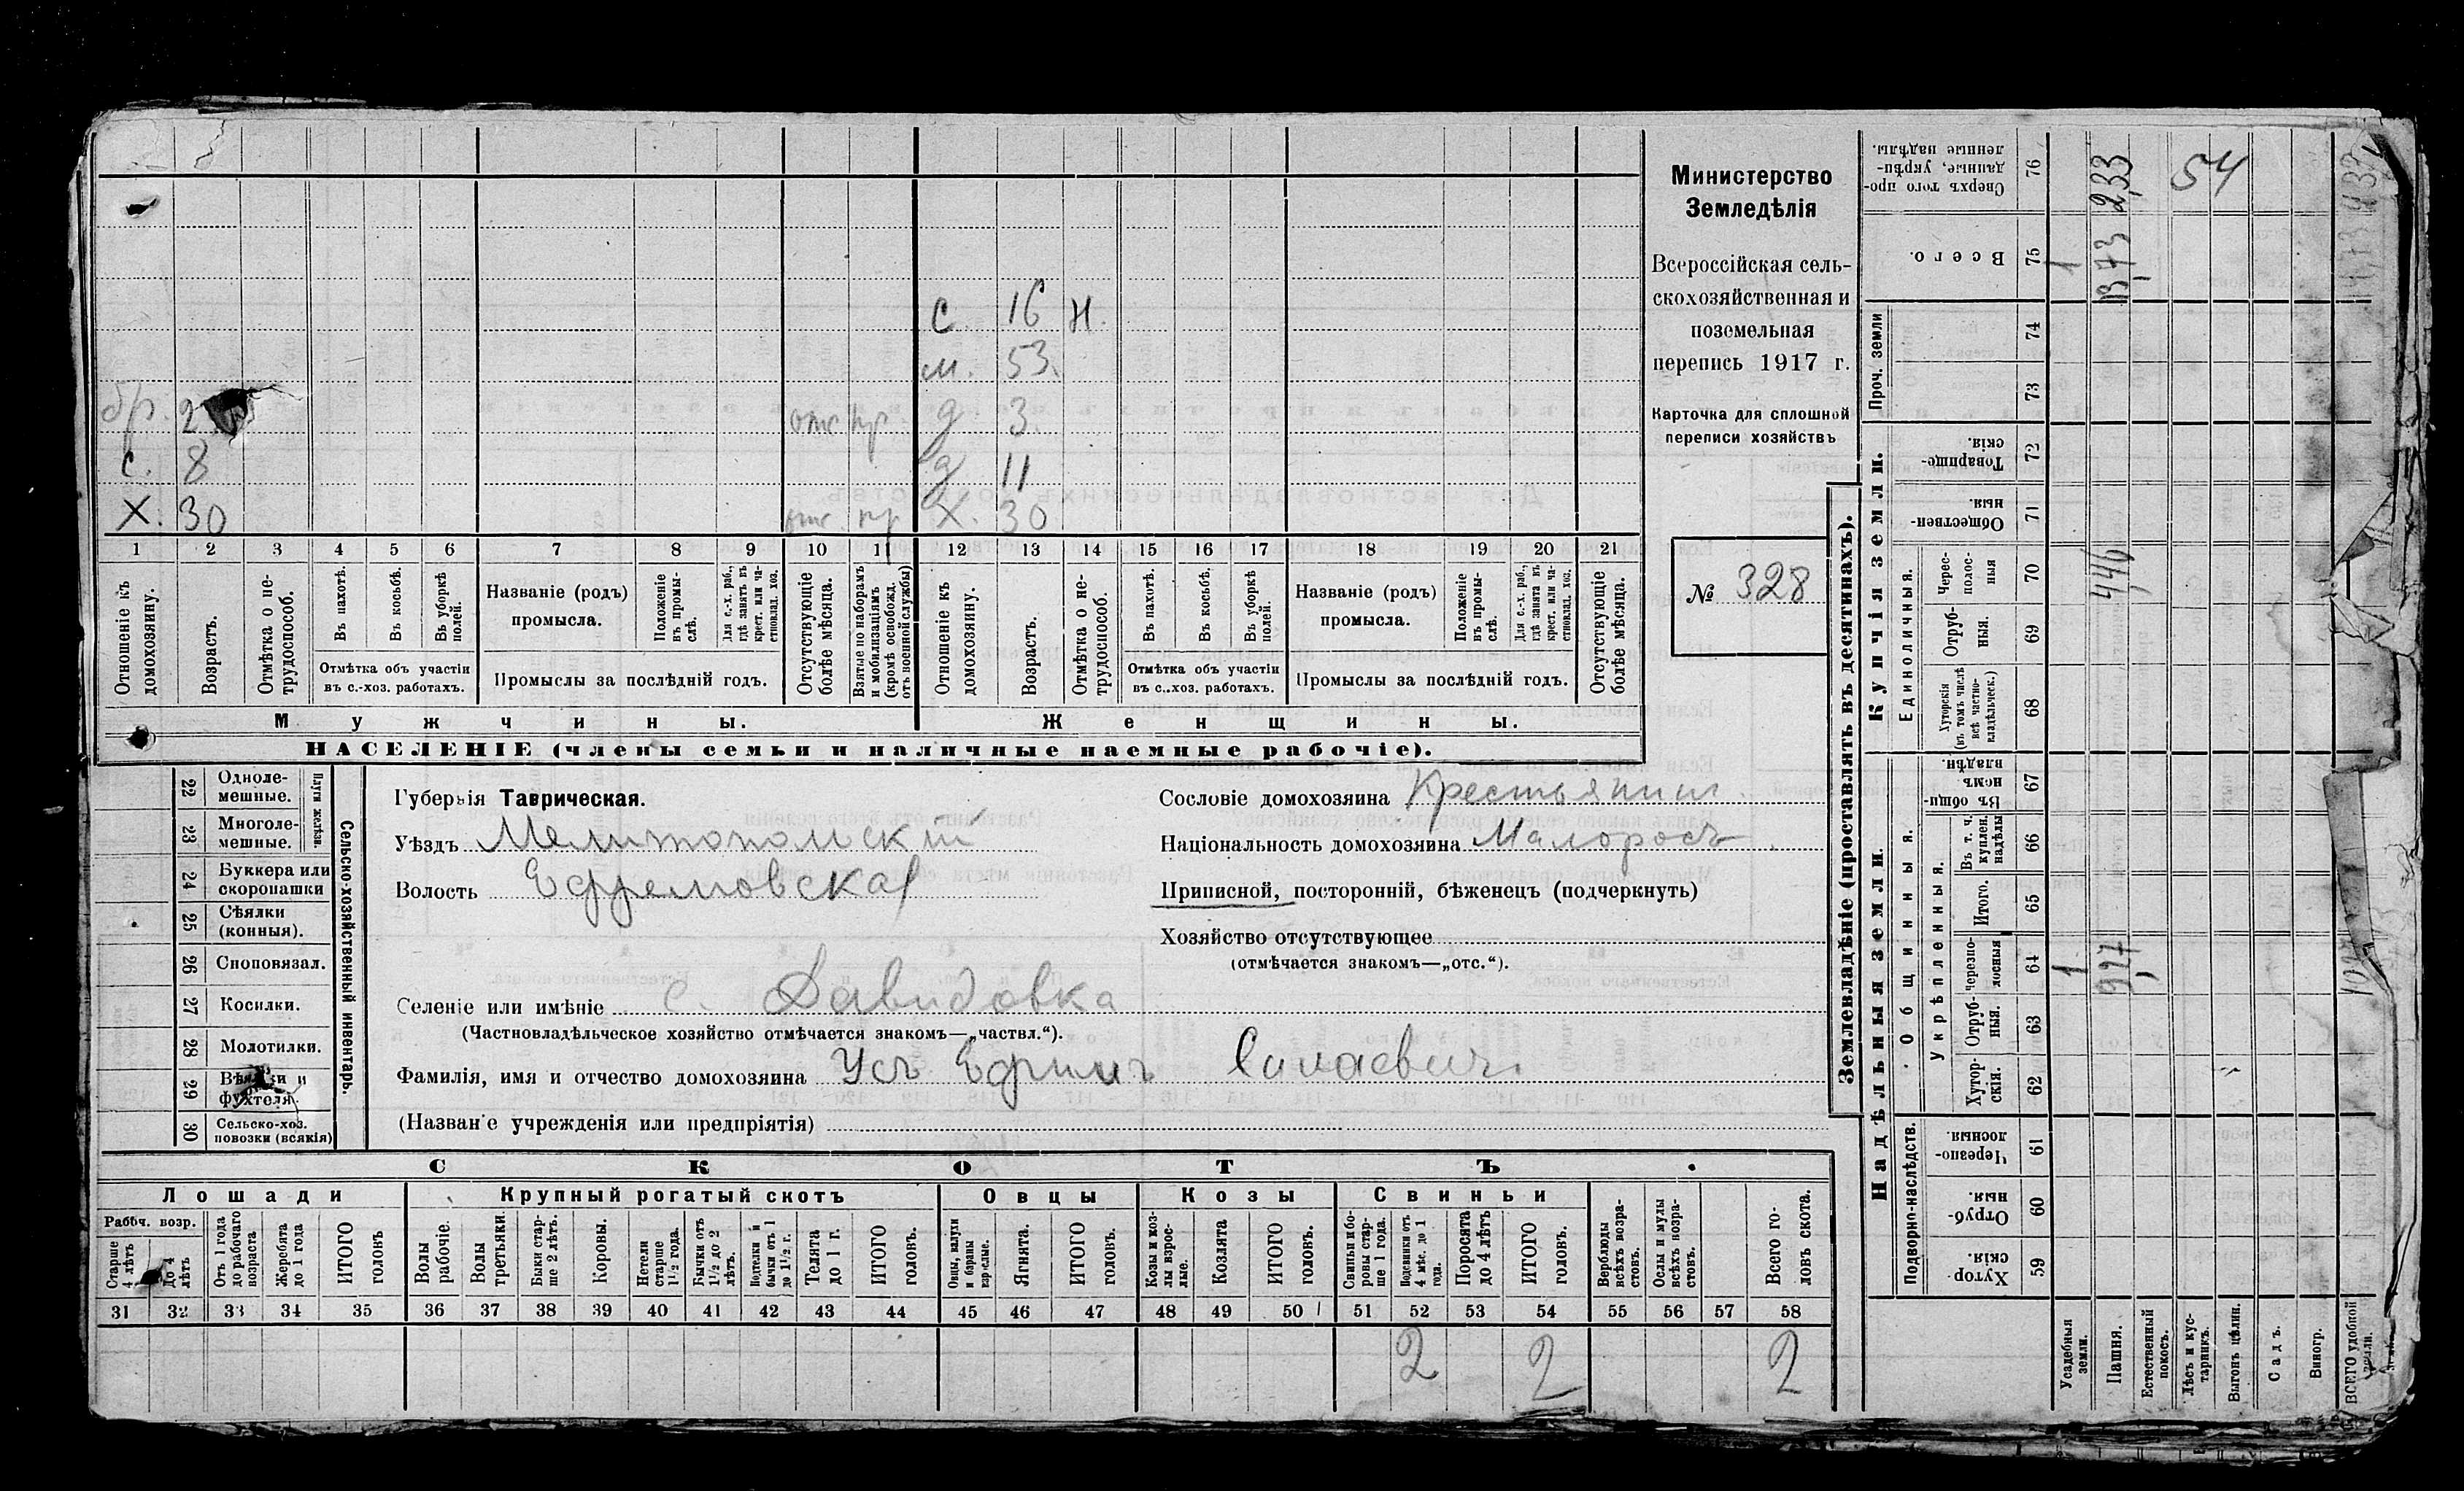 Министерство
Земледѣлія
Всероссійская сель-
скохозяйственная и
поземельная
перепись 1917 г.
Карточка для сплошной
переписи хозяйствъ
№ 328
с. 16 н.
м. 53.
бр. 2 отс пр. д 3.
с. 8 д 11
Х. 30 отс. пр Х. 30
1 2 3 4 5 6 7 8 9 10 11 12 13 14 15 16 17 18 19 20 21
Отношеніе къ домохозяину.
Возрастъ.
Отмѣтка о не-
трудоспособ.
Въ пахотѣ.
Въ косьбѣ.
Въ уборкѣ
полей.
Отмѣтка объ участіи
въ с.-хоз. работахъ.
Названіе (родъ)
промысла.
Положеніе
въ промы-
слѣ.
Для с.-х. раб.,
гдѣ занятъ въ
крест. или ча-
стновлад. хоз.
Промыслы за послѣдній годъ.
Отсутствующіе
болѣе мѣсяца.
Взятые по наборамъ
и мобилизаціямъ
(кромѣ освобожд.
отъ военной службы)
Отношеніе къ
домохозяину.
Возрастъ.
Отмѣтка о не-
трудоспособ.
Въ пахотѣ.
Въ косьбѣ.
Въ уборкѣ
полей.
Отмѣтка объ участіи
въ с.-хоз. работахъ.
Названіе (родъ)
промысла.
Положеніе
въ промы-
слѣ.
Для с.-х. раб.,
гдѣ занята въ
крест. или ча-
стновлад. хоз.
Промыслы за послѣдній годъ.
Отсутствующіе
болѣе мѣсяца.
Мужчины.
Женщины.
НАСЕЛЕНІЕ (члены семьи и наличные наемные рабочіе).
Сельско-хозяйственный инвентарь.
Плуги желѣзн.
22 Одноле-
мешные.
23 Многоле-
мешные.
24 Буккера или
скоропашки
25 Сѣялки
(конныя).
26 Сноповязал.
27 Косилки.
28 Молотилки.
29 Вѣялки и
фухтеля.
30 Сельско-хоз.
повозки (всякія)
Губернія Таврическая.
Уѣздъ Мелитопольскій
Волость Ефремовская
Сословіе домохозяина Крестьянин
Національность домохозяина Малоросъ
Приписной, посторонній, бѣженецъ (подчеркнуть)
Хозяйство отсутствующее
(отмѣчается знакомъ—„отс.“).
Селеніе или имѣніе с. Давидовка
(Частновладѣльческое хозяйство отмѣчается знакомъ—„частвл.“).
Фамилія, имя и отчество домохозяина Усъ Ефимъ Силаевич
(Названіе учрежденія или предпріятія)
СКОТЪ.
Лошади
Рабоч. возр.
Старше
4 лѣтъ
До 4
лѣтъ
Отъ 1 года
до рабочаго
возраста
Жеребята
до 1 года
ИТОГО
головъ
Крупный рогатый скотъ
Волы
рабочіе.
Волы
третьяки.
Быки стар-
ше 2 лѣтъ.
Коровы.
Нетели
старше
1½ года.
Бычки отъ
1½ до 2
лѣтъ.
Подтелки и
бычки отъ 1
до 1½ г.
Телята
до 1 г.
ИТОГО
головъ.
Овцы
Овцы, валухи
и бараны
взрослые.
Ягнята.
ИТОГО
головъ.
Козы
Козы и коз-
лы взрос-
лые.
Козлята
ИТОГО
головъ.
Свиньи
Свиньи и бо-
ровы стар-
ше 1 года.
Подсвинки отъ
4 мѣс. до 1
года.
Поросята
до 4 лѣтъ
ИТОГО
головъ.
Верблюды
всѣхъ возра-
стовъ.
Ослы и мулы
всѣхъ возра-
стовъ.
Всего го-
ловъ скота.
31 32 33 34 35 36 37 38 39 40 41 42 43 44 45 46 47 48 49 50 51 52 53 54 55 56 57 58
2 2 2
Землевладѣніе (проставлять въ десятинахъ).
Купчія земли.
Надѣльныя земли.
Сверхъ того про-
данные, укрѣп-
ленные надѣлы.
76
2,33
54
Всего.
75
1
13,73
Проч. земли
74
73
Товарище-
скія.
72
Обществен-
ныя
71
Единоличныя.
Черес-
полос-
ныя
70
446
Отруб-
ныя.
69
Хуторскія
(въ томъ числѣ
всѣ частно-
владѣльческ.)
68
Общинныя.
Въ общи
номъ
владѣн.
67
Укрѣпленныя.
Въ т. ч.
куплен.
надѣлы
66
Итого.
65
черезпо-
лосныя
64
1
9,27
Отруб-
ныя.
63
Хутор-
скія.
62
Подворно-наслѣдств.
Черезпо-
лосныя
61
Отруб-
ныя.
60
Хутор
скія
59
Усадебныя
земли.
Пашня.
Естественный
покосъ.
Лѣсъ и кус-
тарникъ.
Выгонъ цѣлин.
Садъ.
Виногр.
ВСЕГО удобной
земли.